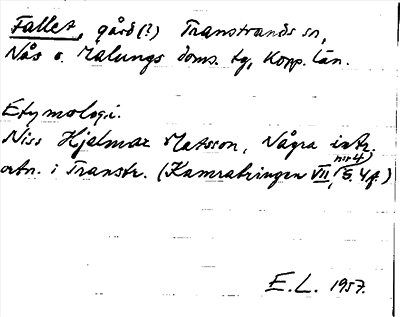 Fallet, gård (?) Transtrands sn,
Nås o. Malungs doms. tg, Kopp. län.
Etymologi.
Niss Hjalmar Matsson, Några intr.
nr 4)
ortn. i Transtr. (Kamratringen VII, S. 4 f.)
E.L. 1957.